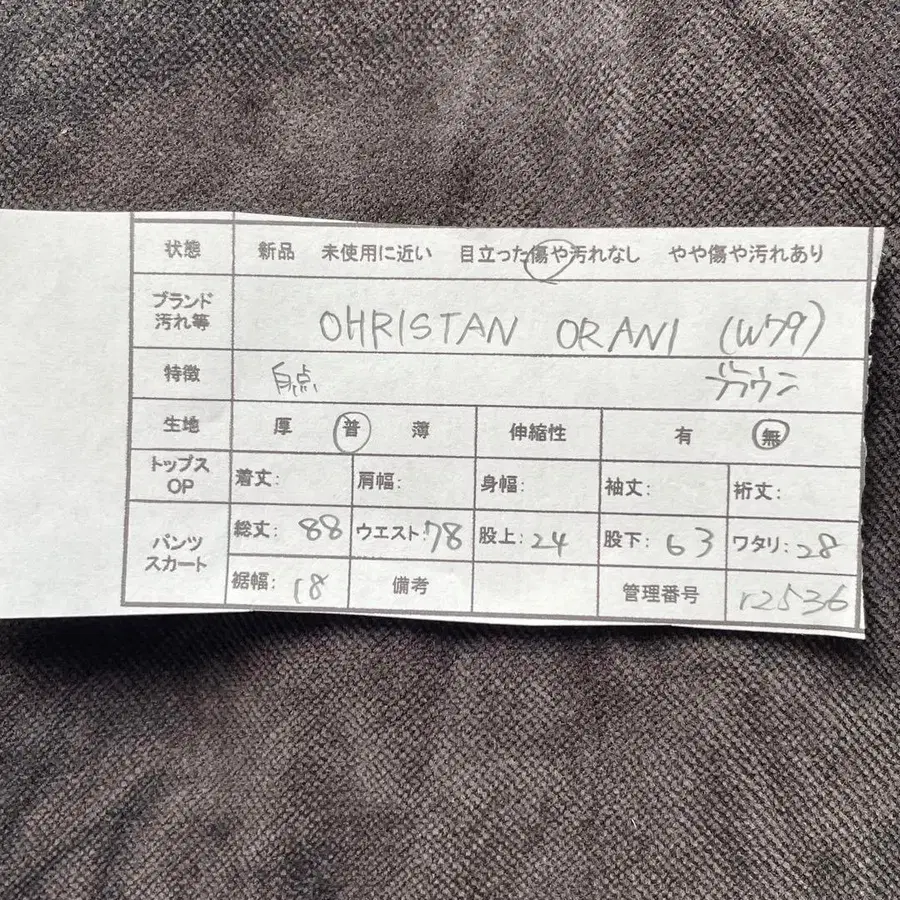 状態 新品 未使用に近い 目立った傷や汚れなし やや傷や汚れあり
ブランド
汚れ等 OHRISTAN ORANI (W79)
特徴 白点 ブラウン
生地 厚 普 薄 伸縮性 有 無
トップス
OP 着丈: 肩幅: 身幅: 袖丈: 裄丈:
パンツ
スカート 総丈: 88 ウエスト: 78 股上: 24 股下: 63 ワタリ: 28
裾幅: 18 備考 管理番号 r2536